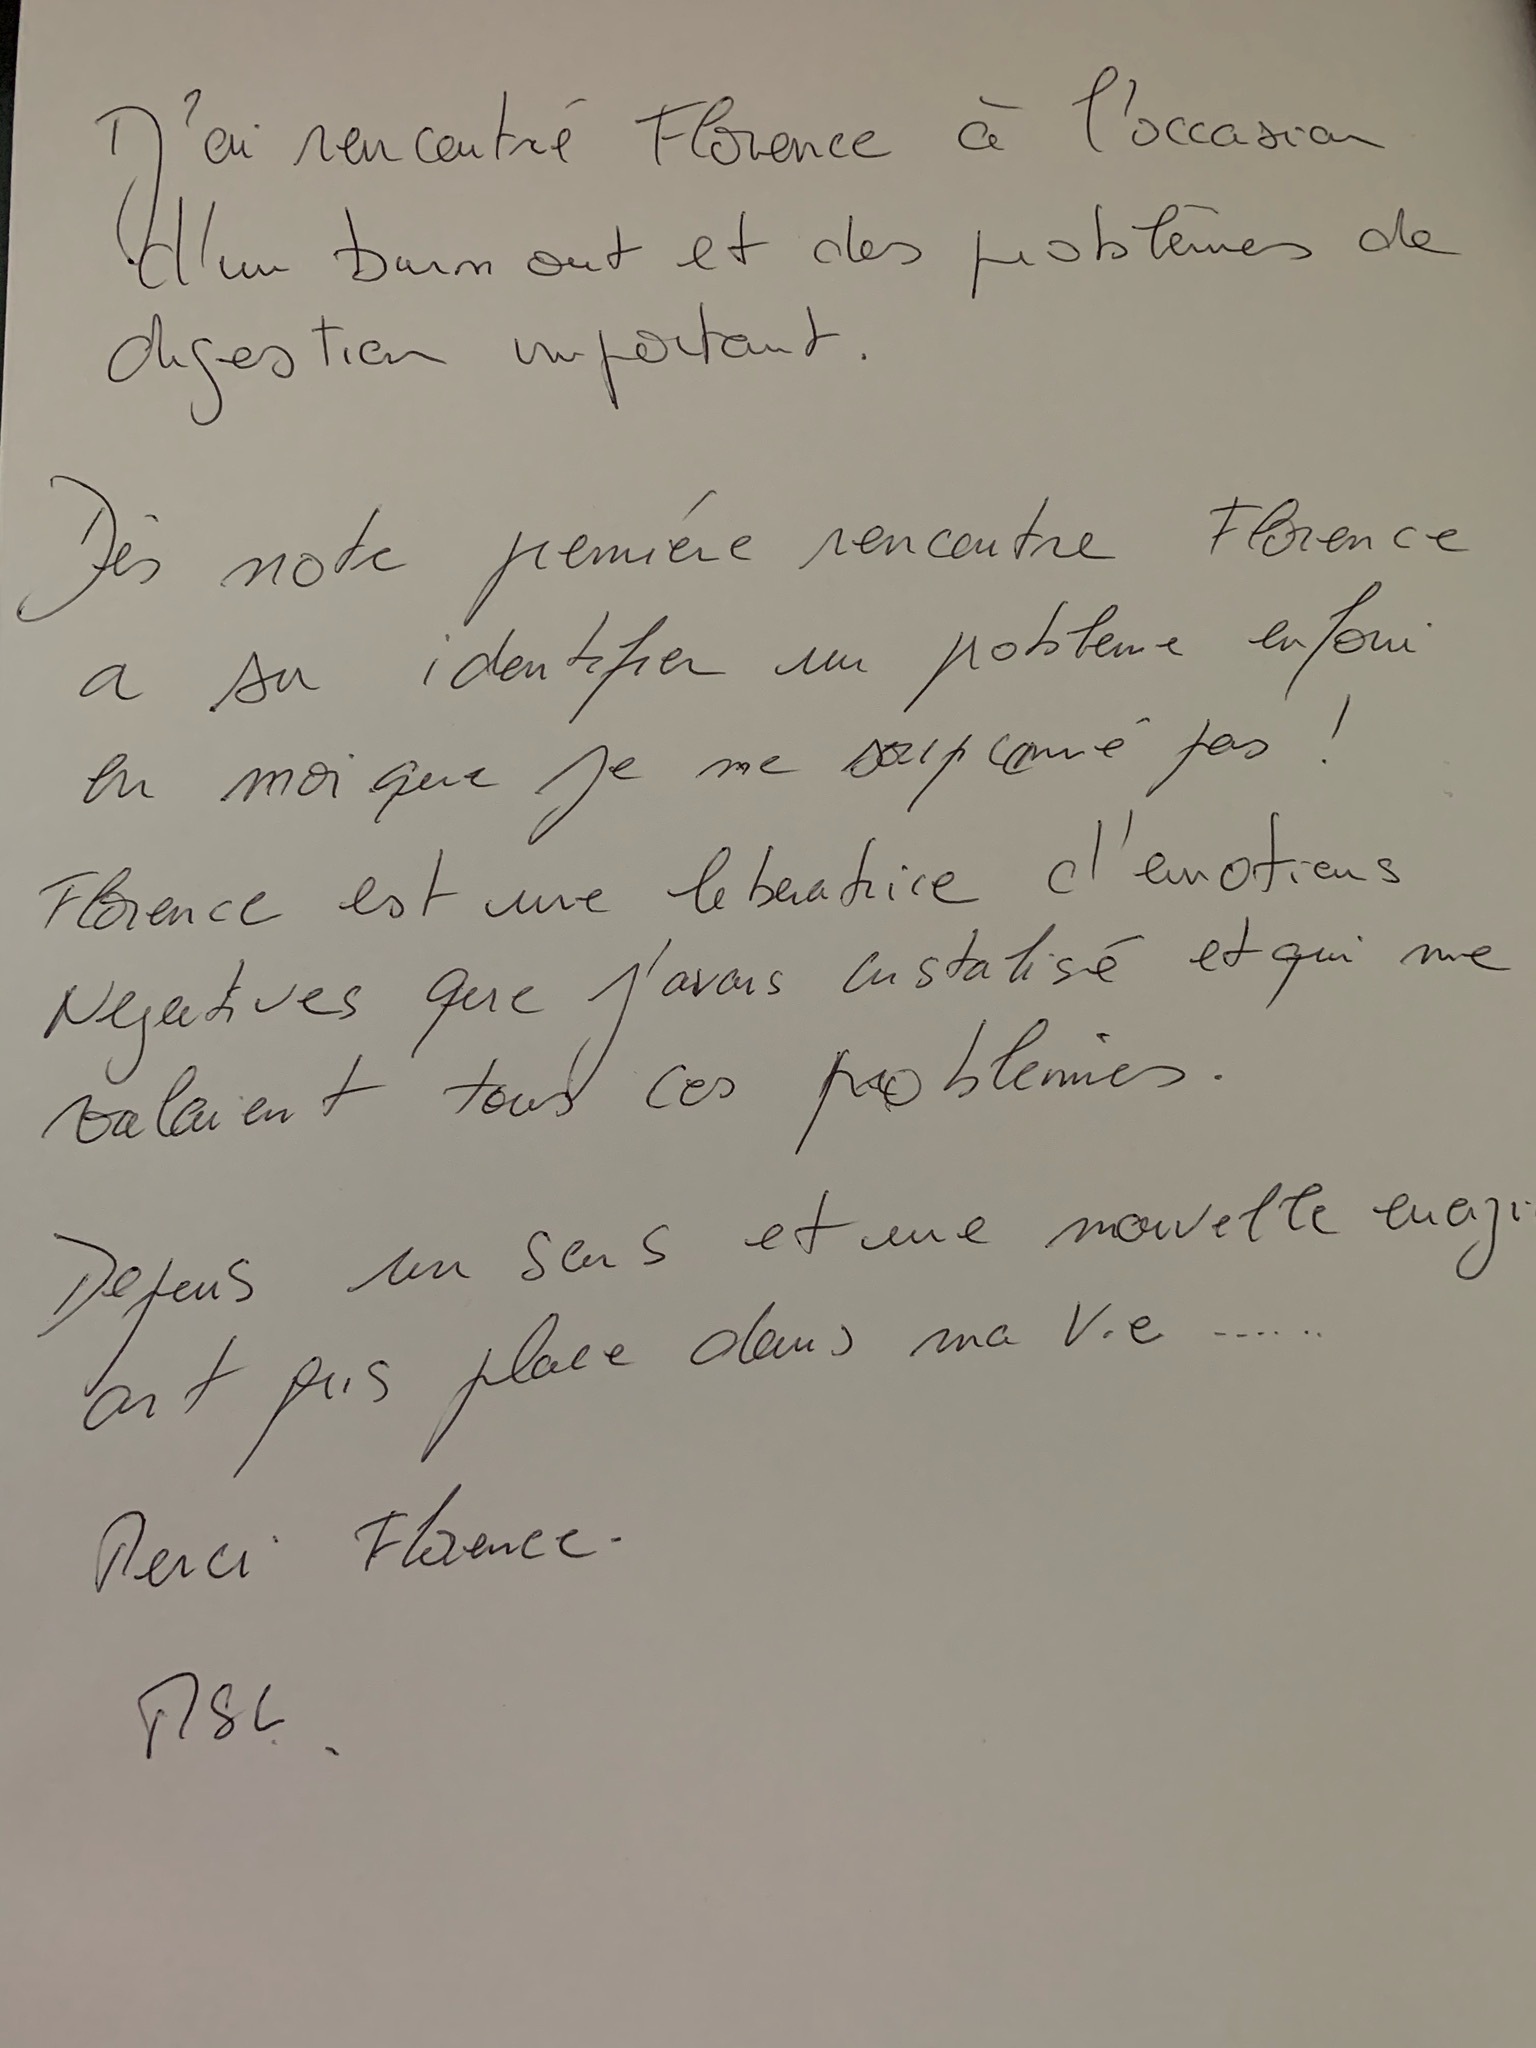 J'ai rencontré Florence à l'occasion
d'un burn out et des problèmes de
digestion important.
Dès notre première rencontre Florence
a su identifier un problème enfoui
en moi que je ne soupçonné pas !
Florence est une liberatrice d'emotions
Negatives que j'avais cristalisé et qui me
valaient tous ces problèmes.
Depuis un sens et une nouvelle
ont pris place dans ma vie ......
Merci Florence.
MSL.